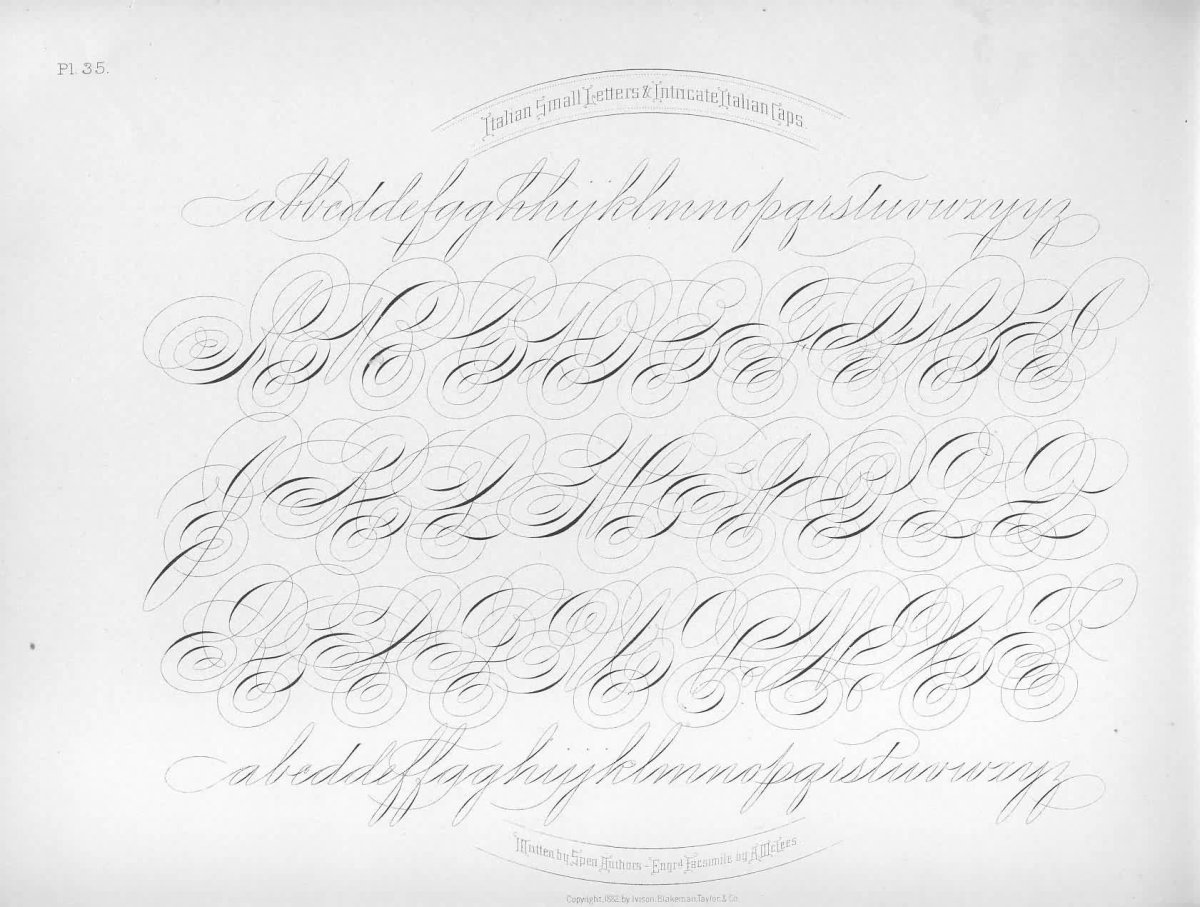 Pl. 35.
Italian Small Letters & Intricate Italian Caps.
abbcddefgghhijklmnopqrstuvwxyyz
A B C D E F G H I
J K L M N O P Q
R S T U V W X Y Z
abcddeffgghijjklmnopqrstuvwxyyz
Written by Spen Authors - Engrd Facsimile by A McLees
Copyright, 1882, by Ivison, Blakeman, Taylor, & Co.